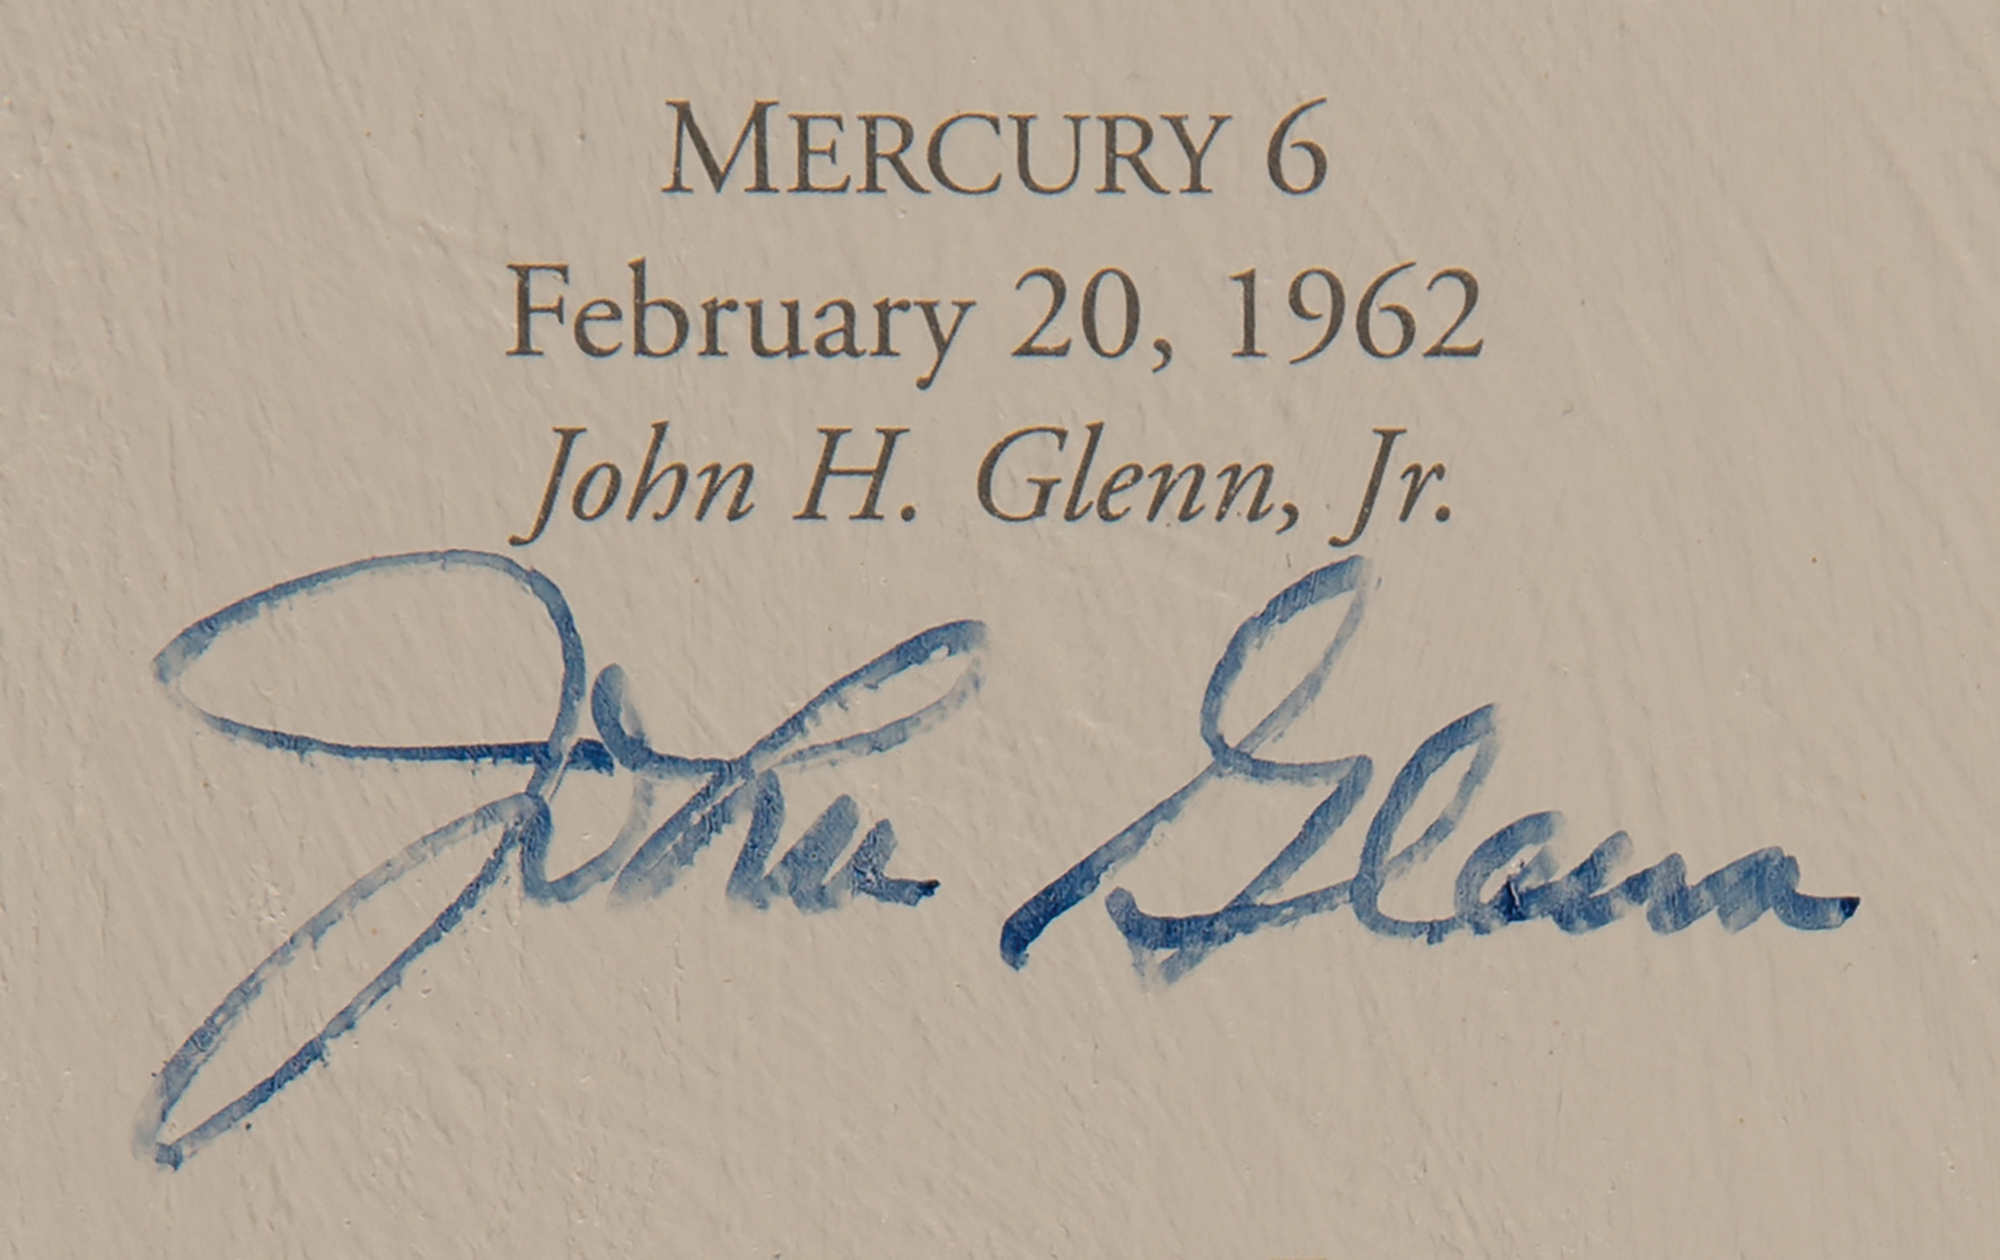 MERCURY 6
February 20, 1962
John H. Glenn, Jr.
John Glenn